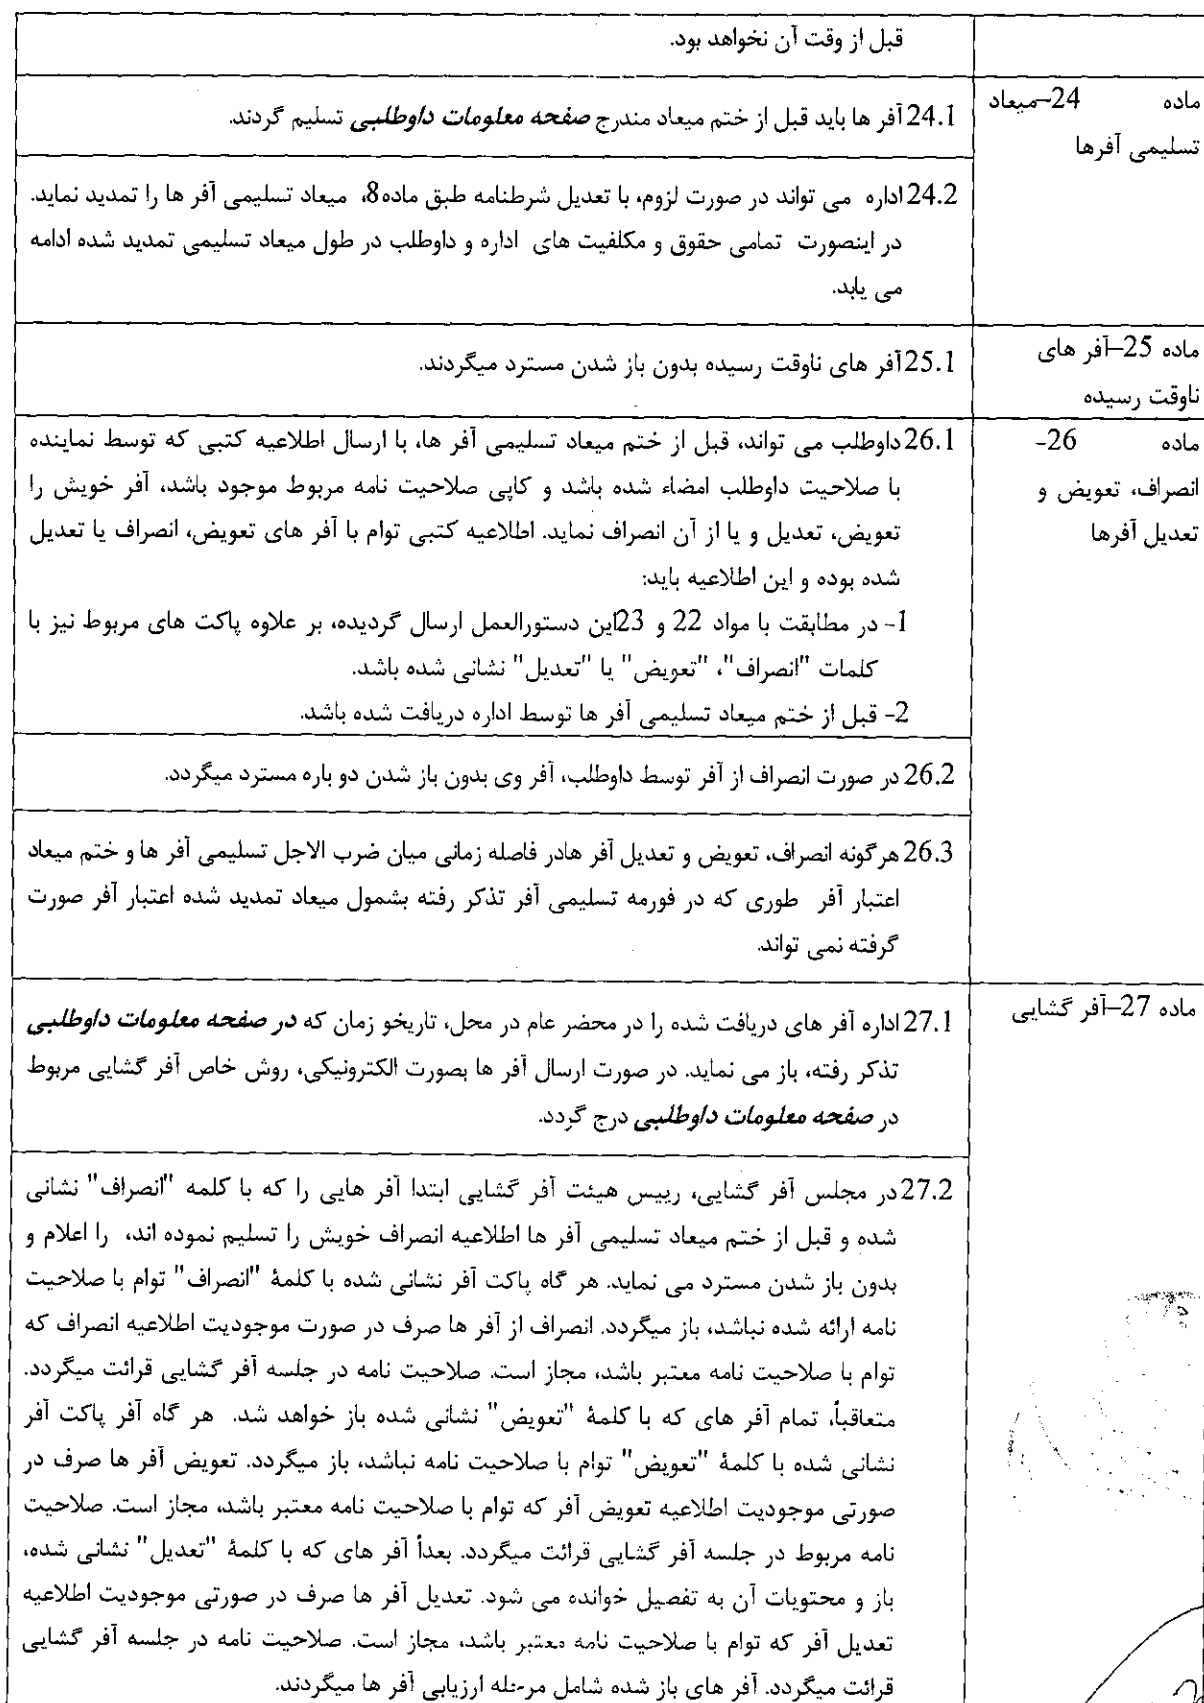 قبل از وقت آن نخواهد بود.
ماده 24–میعاد
تسلیمی آفرها
24.1 آفر ها باید قبل از ختم میعاد مندرج صفحه معلومات داوطلبی تسلیم گردند.
24.2 اداره می تواند در صورت لزوم، با تعدیل شرطنامه طبق ماده8، میعاد تسلیمی آفر ها را تمدید نماید.
در اینصورت تمامی حقوق و مکلفیت های اداره و داوطلب در طول میعاد تسلیمی تمدید شده ادامه
می یابد.
ماده 25–آفر های
ناوقت رسیده
25.1 آفر های ناوقت رسیده بدون باز شدن مسترد میگردند.
ماده 26-
انصراف، تعویض و
تعدیل آفرها
26.1 داوطلب می تواند، قبل از ختم میعاد تسلیمی آفر ها، با ارسال اطلاعیه کتبی که توسط نماینده
با صلاحیت داوطلب امضاء شده باشد و کاپی صلاحیت نامه مربوط موجود باشد، آفر خویش را
تعویض، تعدیل و یا از آن انصراف نماید. اطلاعیه کتبی توام با آفر های تعویض، انصراف یا تعدیل
شده بوده و این اطلاعیه باید:
1- در مطابقت با مواد 22 و 23این دستورالعمل ارسال گردیده، بر علاوه پاکت های مربوط نیز با
کلمات "انصراف"، "تعویض" یا "تعدیل" نشانی شده باشد.
2- قبل از ختم میعاد تسلیمی آفر ها توسط اداره دریافت شده باشد.
26.2 در صورت انصراف از آفر توسط داوطلب، آفر وی بدون باز شدن دو باره مسترد میگردد.
26.3 هرگونه انصراف، تعویض و تعدیل آفر هادر فاصله زمانی میان ضرب الاجل تسلیمی آفر ها و ختم میعاد
اعتبار آفر طوری که در فورمه تسلیمی آفر تذکر رفته بشمول میعاد تمدید شده اعتبار آفر صورت
گرفته نمی تواند.
ماده 27–آفر گشایی
27.1 اداره آفر های دریافت شده را در محضر عام در محل، تاریخو زمان که در صفحه معلومات داوطلبی
تذکر رفته، باز می نماید. در صورت ارسال آفر ها بصورت الکترونیکی، روش خاص آفر گشایی مربوط
در صفحه معلومات داوطلبی درج گردد.
27.2 در مجلس آفر گشایی، رییس هیئت آفر گشایی ابتدا آفر هایی را که با کلمه "انصراف" نشانی
شده و قبل از ختم میعاد تسلیمی آفر ها اطلاعیه انصراف خویش را تسلیم نموده اند، را اعلام و
بدون باز شدن مسترد می نماید. هر گاه پاکت آفر نشانی شده با کلمۀ "انصراف" توام با صلاحیت
نامه ارائه شده نباشد، باز میگردد. انصراف از آفر ها صرف در صورت موجودیت اطلاعیه انصراف که
توام با صلاحیت نامه معتبر باشد، مجاز است. صلاحیت نامه در جلسه آفر گشایی قرائت میگردد.
متعاقباً، تمام آفر های که با کلمۀ "تعویض" نشانی شده باز خواهد شد. هر گاه آفر پاکت آفر
نشانی شده با کلمۀ "تعویض" توام با صلاحیت نامه نباشد، باز میگردد. تعویض آفر ها صرف در
صورتی موجودیت اطلاعیه تعویض آفر که توام با صلاحیت نامه معتبر باشد، مجاز است. صلاحیت
نامه مربوط در جلسه آفر گشایی قرائت میگردد. بعداً آفر های که با کلمۀ "تعدیل" نشانی شده،
باز و محتویات آن به تفصیل خوانده می شود. تعدیل آفر ها صرف در صورتی موجودیت اطلاعیه
تعدیل آفر که توام با صلاحیت نامه معتبر باشد، مجاز است. صلاحیت نامه در جلسه آفر گشایی
قرائت میگردد. آفر های باز شده شامل مرحله ارزیابی آفر ها میگردند.